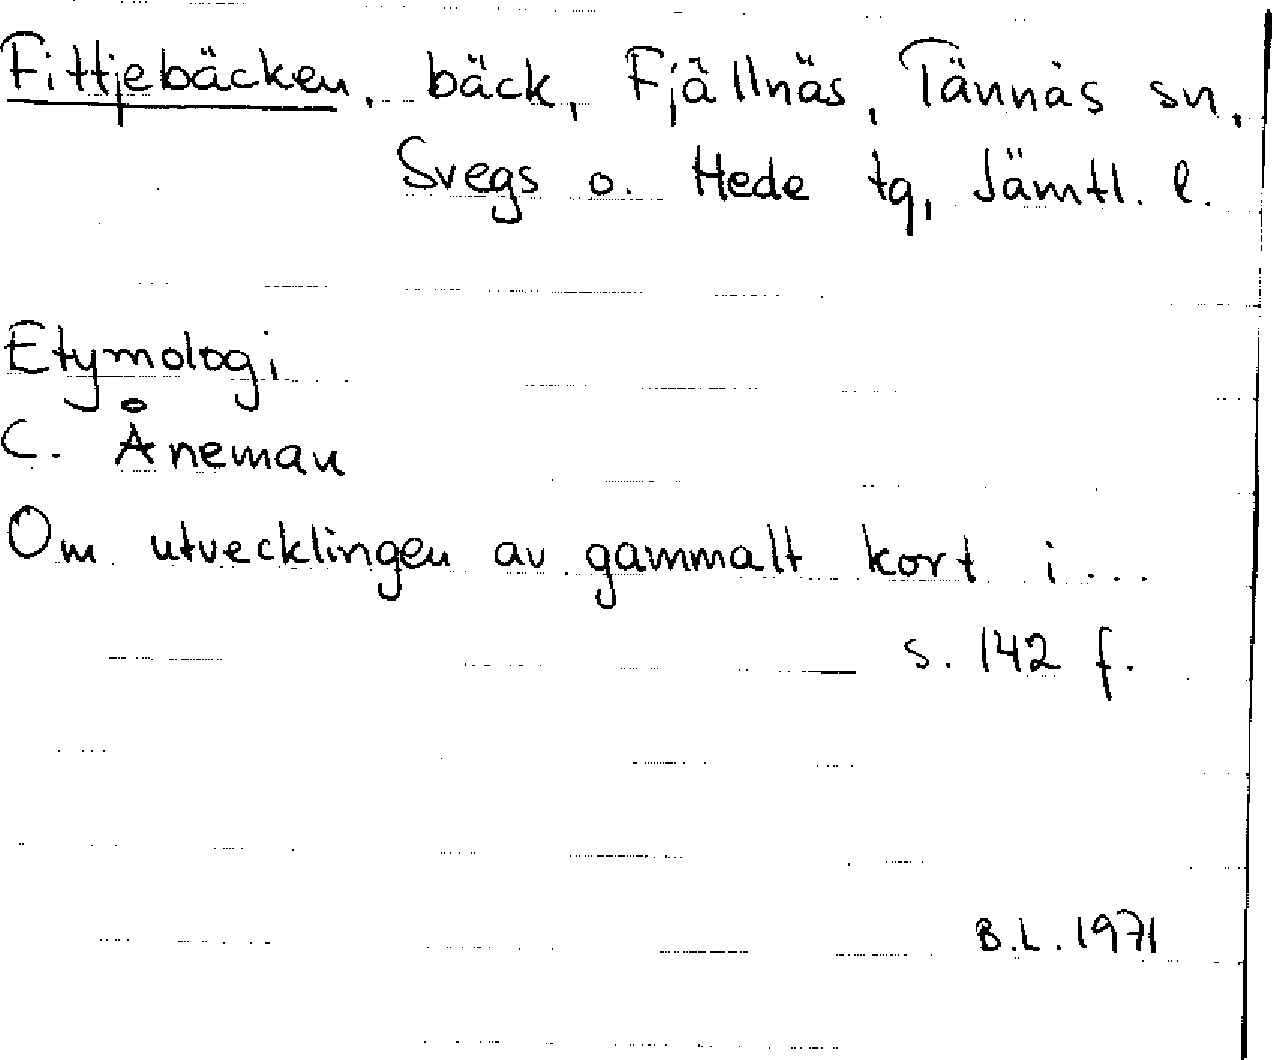 Fittjebäcken, bäck, Fjällnäs, Tännäs sn,
Svegs o. Hede tg, Jämtl. l.
Etymologi
C. Åneman
Om utvecklingen av gammalt kort i...
s. 142 f.
B.L. 1971